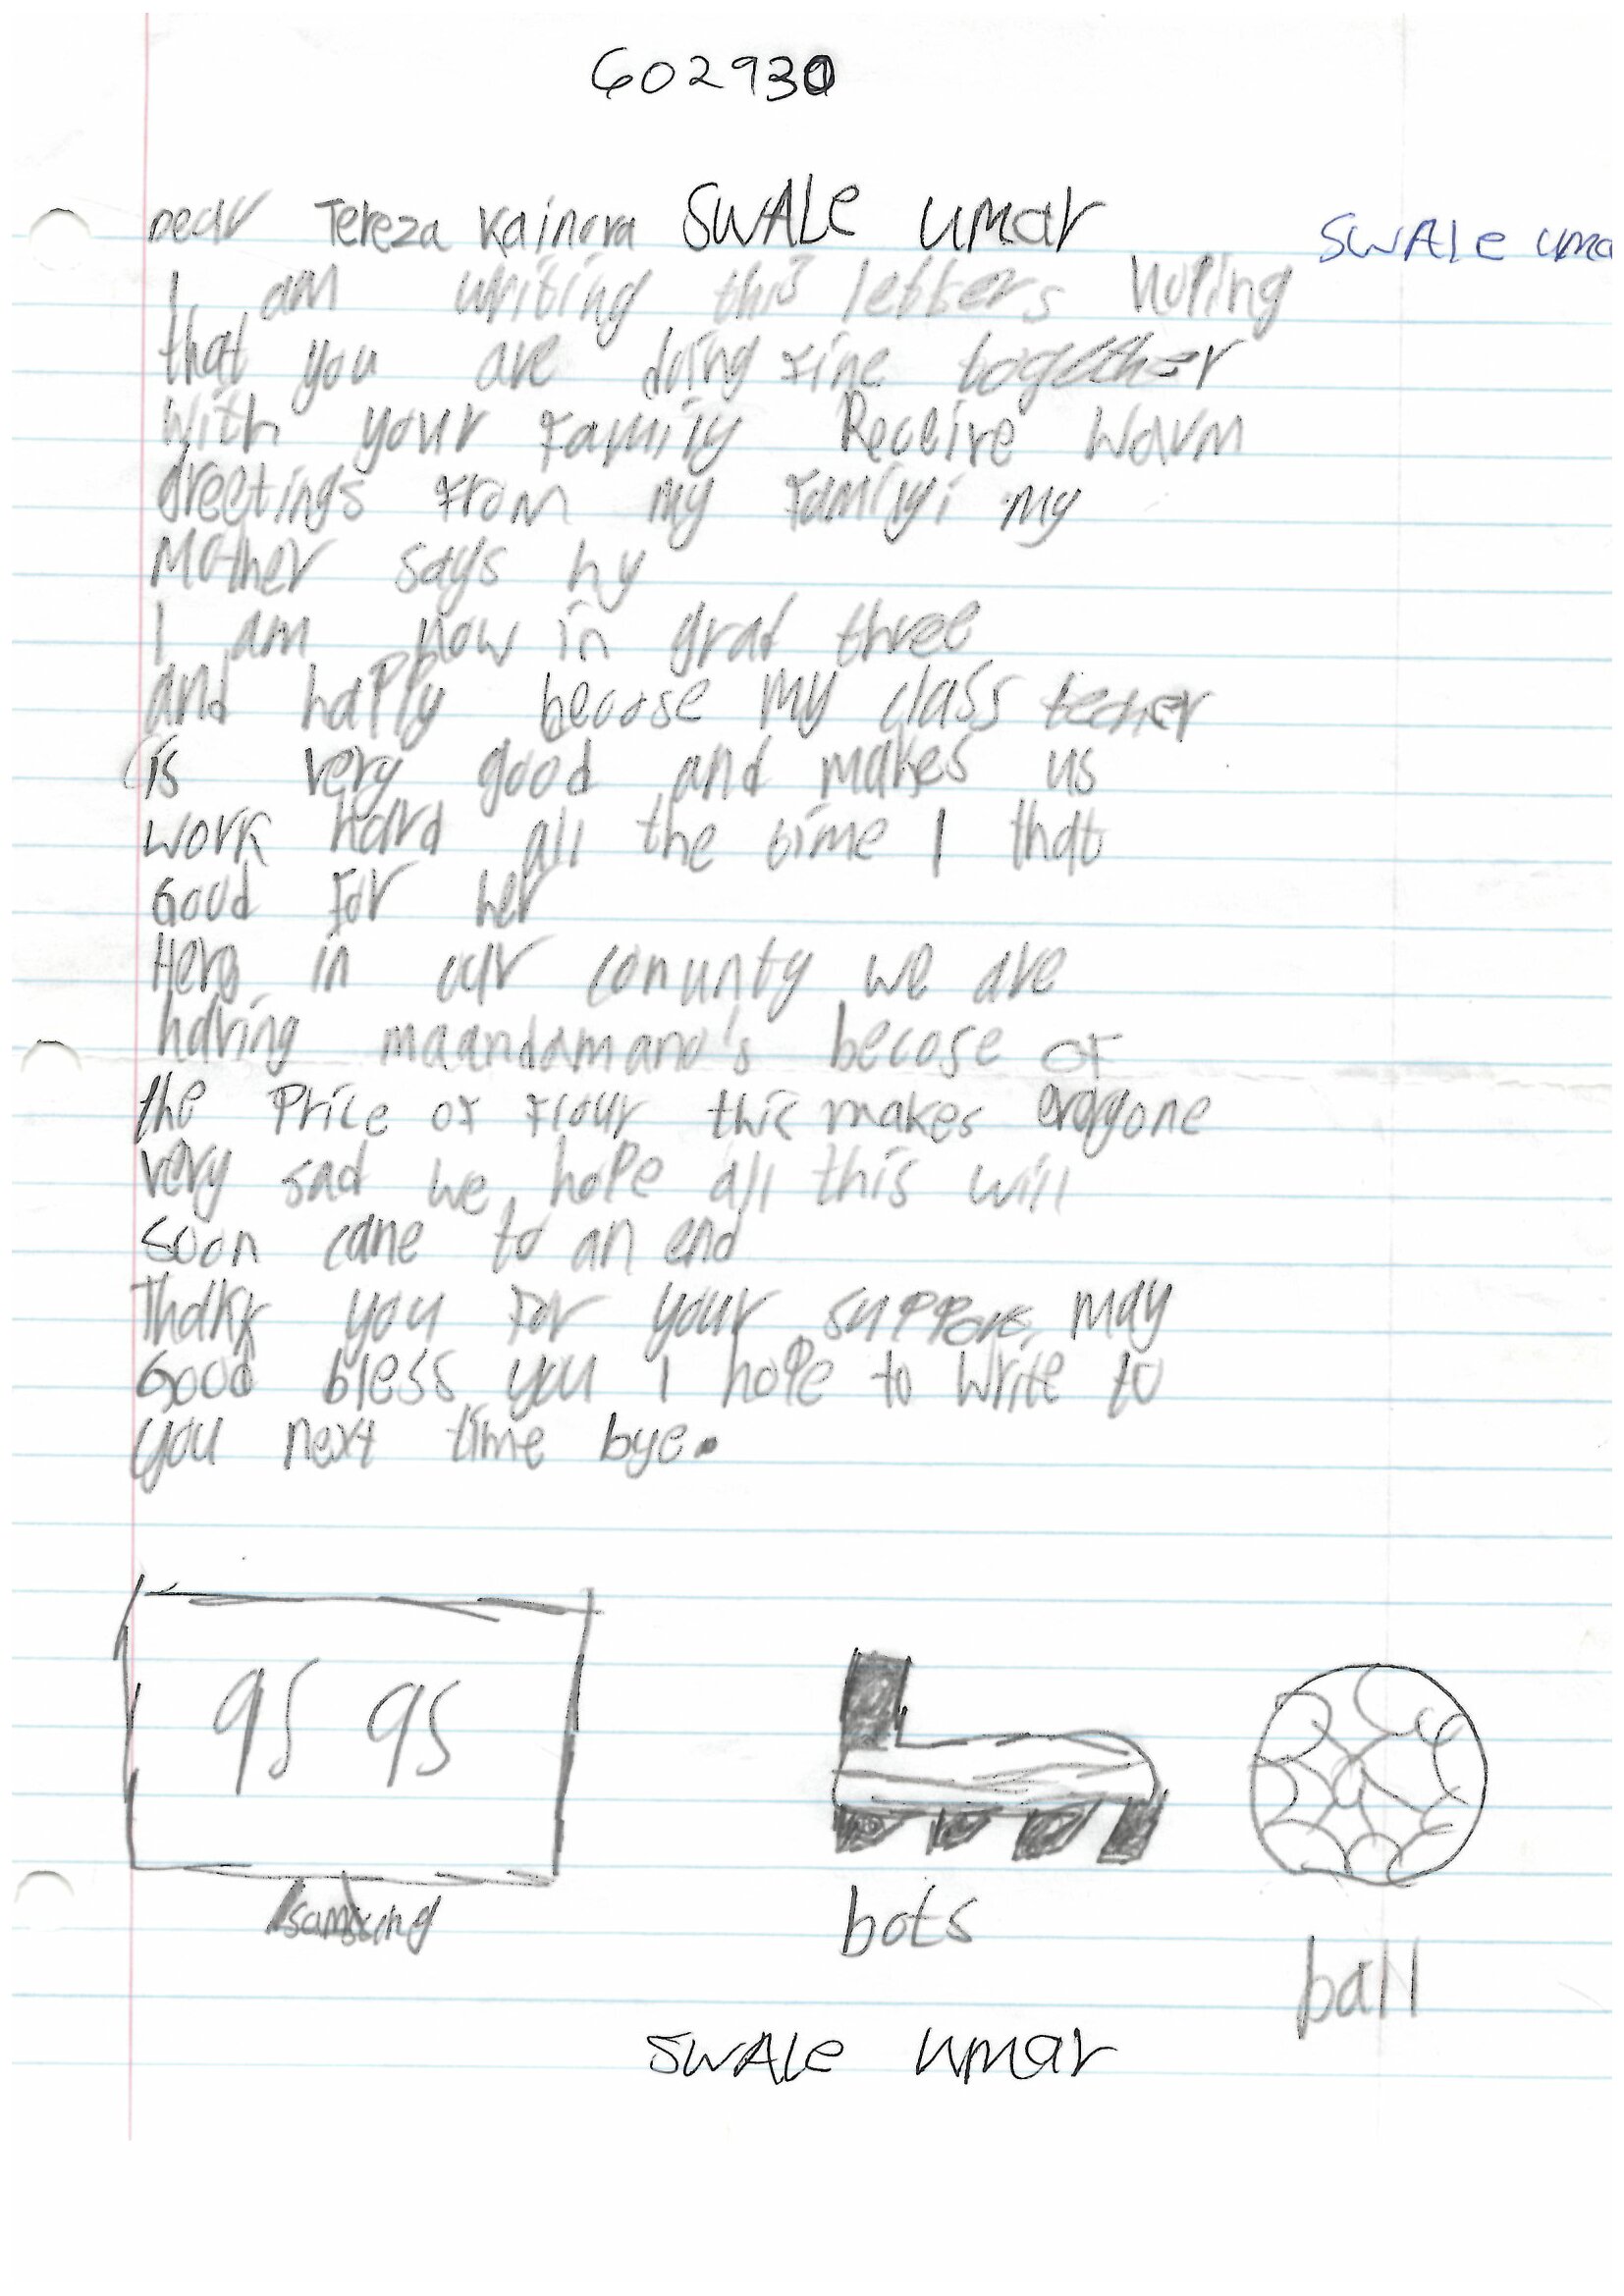 602930
Dear Tereza Kainova SWALe umar
SWALe uma
I am writing this letters hoping
that you are doing fine together
with your family Receive warm
greetings from my familyi my
Mother says hy
I am now in grad three
and happy becose my class techer
is very good and makes us
work Hard all the time I that
Good for her
Here in our conunty we are
having maandamano's becose of
the Price of flour this makes evryone
very sad we hope all this will
soon cane to an end
Thank you for your support may
Good bless you I hope to write to
you next time bye.
95 95
samsung
bots
ball
SWALe umar